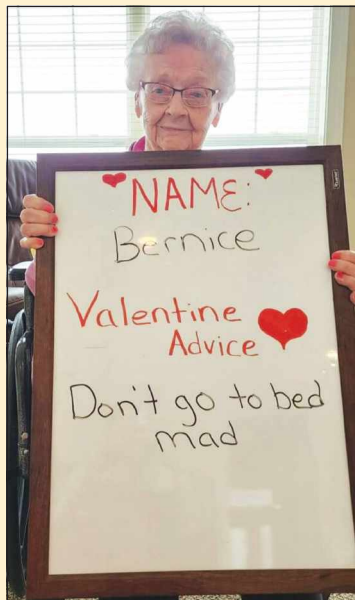 NAME:
Bernice
Valentine
Advice
Don't go to bed
mad